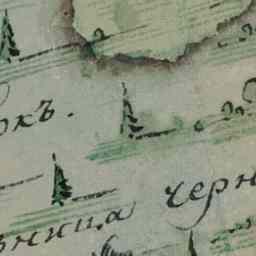 ркъ.
вница черн